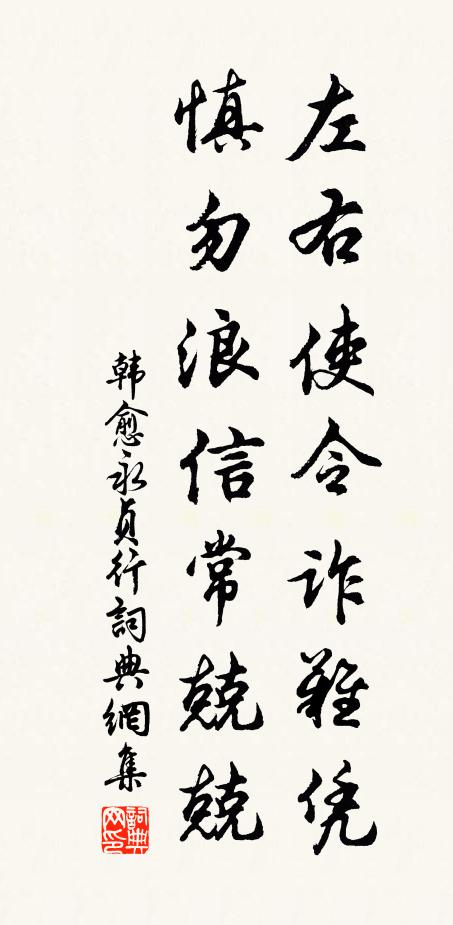 左右使令诈难凭
慎勿浪信常兢兢
韩愈永贞行詞典網集
詞典网印